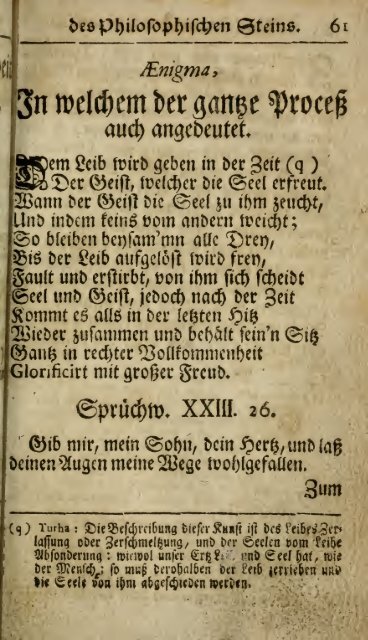 des Philosophischen Steins. 61
Ænigma,
In welchem der gantze Proceß
auch angedeutet.
Dem Leib wird geben in der Zeit (q)
Der Geist, welcher die Seel erfreut.
Wann der Geist die Seel zu ihm zeucht,
Und indem keins vom andern weicht;
So bleiben beysam'mn alle Drey,
Bis der Leib aufgelöst wird frey,
Fault und erstirbt, von ihm sich scheidt
Seel und Geist, jedoch nach der Zeit
Kommt es alls in der letzten Hitz
Wieder zusammen und behält sein'n Sitz
Gantz in rechter Vollkommenheit
Glorificirt mit großer Freud.
Sprüchw. XXIII. 26.
Gib mir, mein Sohn, dein Hertz, und laß
deinen Augen meine Wege wohlgefallen.
Zum
(q) Turba: Die Beschreibung dieser Kunst ist des Leibes Zer-
lassung oder Zerschmeltzung, und der Seelen vom Leibe
Absonderung: wiewol unser Ertz und Seel hat, wie
der Mensch; so muß derohalben der Leib zerrieben und
die Seele von ihm abgeschieden werden.